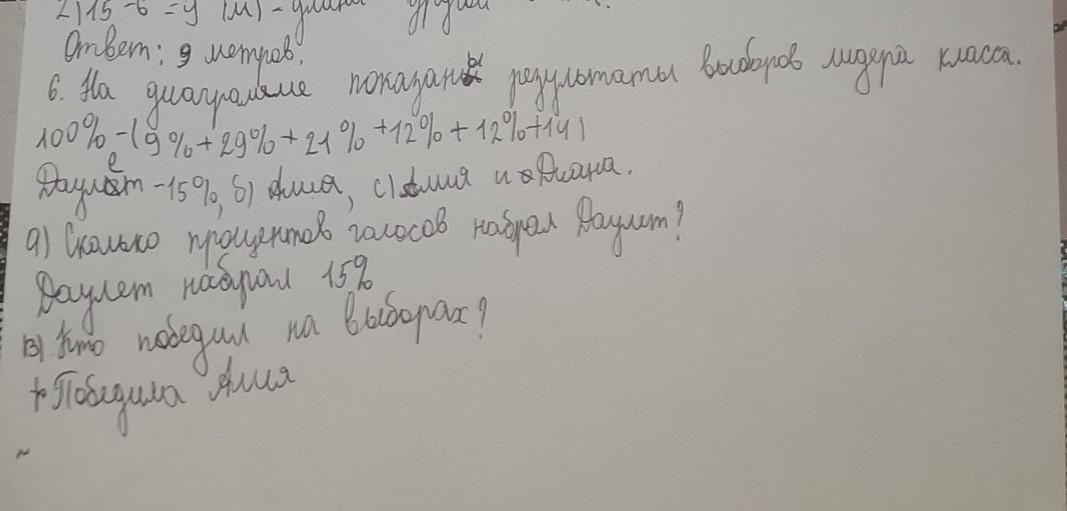 2) 15-6=9 (м) - длина другой
Ответ: 9 метров.
6. На диаграмме показаны результаты выборов лидера класса.
100%-(9%+29%+21%+12%+12%+14)
Даулет -15%, б) Алия, с) Алия и Диана.
а) Сколько процентов голосов набрал Даулет?
Даулет набрал 15%
в) Кто победил на выборах?
Победила Алия